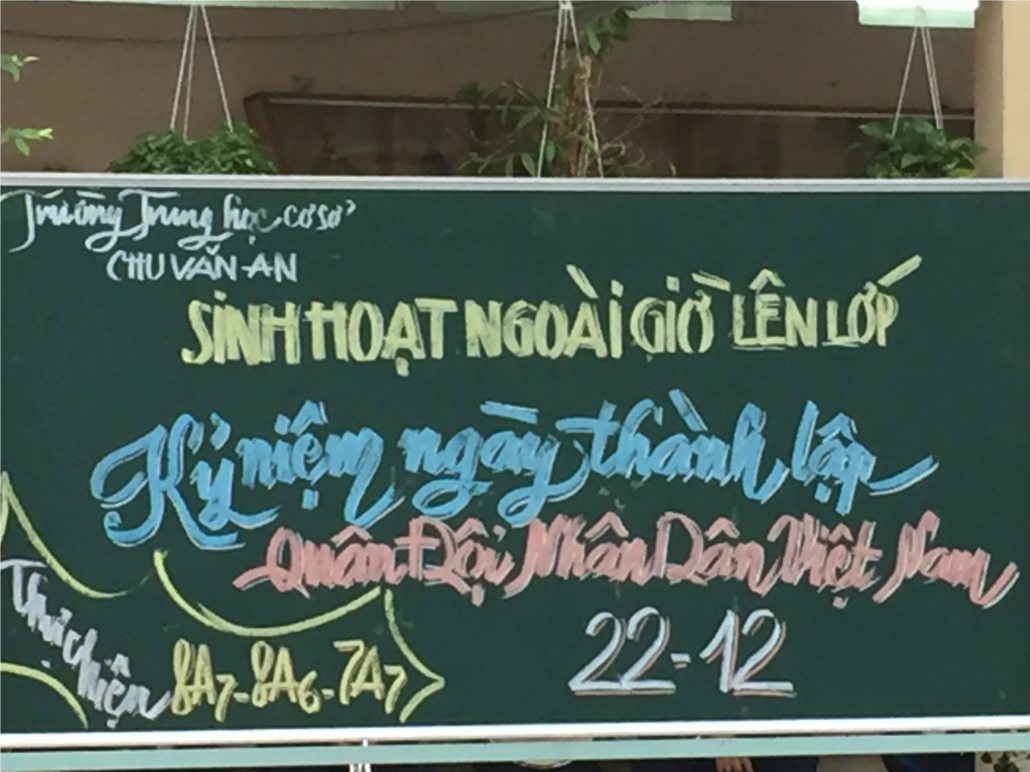 Trường Trung học cơ sở
CHU VĂN AN
SINH HOẠT NGOÀI GIỜ LÊN LỚP
Kỷ niệm ngày thành lập
Quân Đội Nhân Dân Việt Nam
22-12
Thực hiện 8A7-8A6-7A7